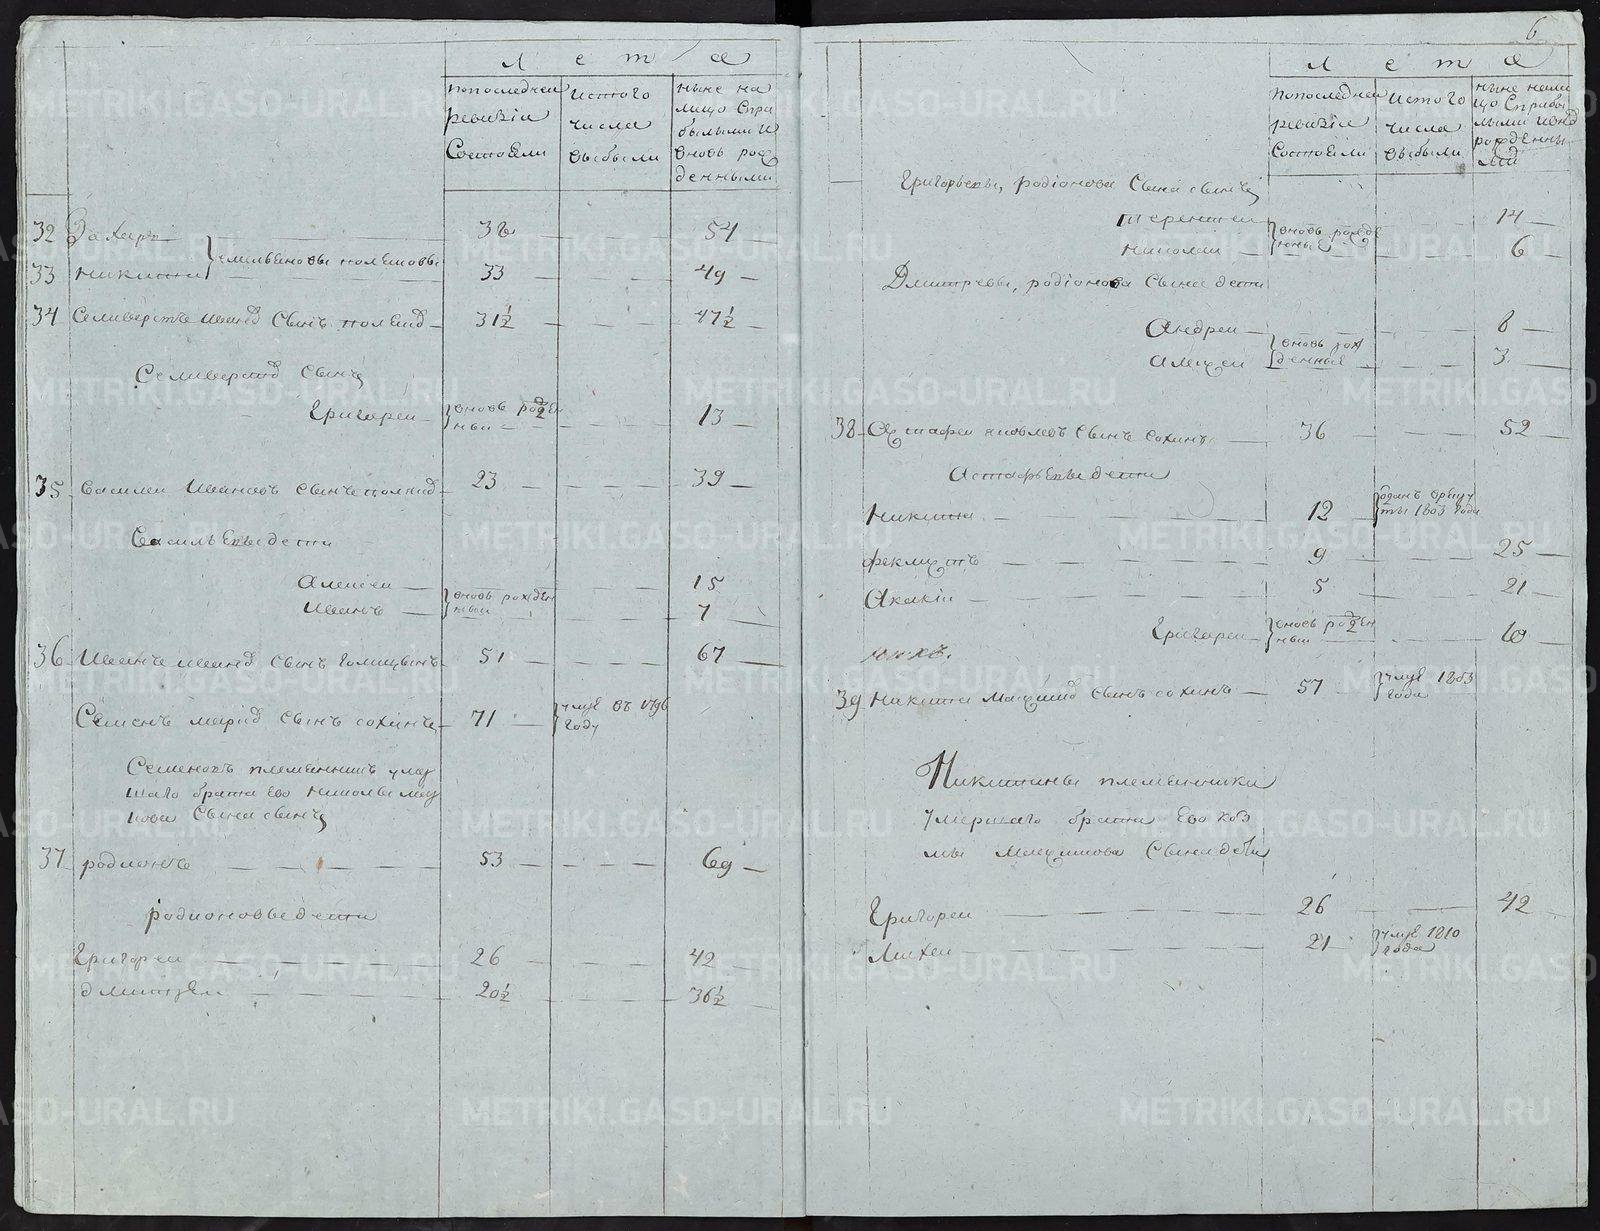 Лета
попоследней ревизіи Состояли
истого числа выбыли
ныне на лицо Спри былыми и вновь рож денными
32 Захаръ 38 54
Емельяновы
33 Никита 33 49
34 Селиверстъ Иванов Сынъ 31½ 47½
Селиверстов Сынъ
Григореи вновь рожден ныи 13
35 Василеи Ивановъ Сынъ 23 39
Васильевы дети
Алексеи 15
вновь рожден ныи
Иванъ 7
36 Иванъ Иванов Сынъ Голицынъ 51 67
Семенъ Сынъ Сохинъ 71 умре въ 1796 году
Семеновъ племянникъ умер шаго брата Ево Николы Сына сынъ
37 родионъ 53 69
родионовы дети
Григореи 26 42
дмитреи 20½ 36½
6
Лета
попоследней ревизіи Состояли
истого числа выбыли
ныне нали цо Сприбы лыми и внов рожденны ми
Григорьевы, родіонова Сына сынъ
Терентеи 14
вновь рожде нные
Николаи 6
Дмитревы, родіонова Сына дети
Андреи 8
вновь рож денные
Алексеи 3
38 Астафеи яковлевъ Сынъ Сохинъ 36 52
Астафьевы дети
Никита 12 оданъ врекру ты 1803 года
феклистъ 9 25
Акакіи 5 21
Григореи вновь рожден ныи 10
39 Никита Сынъ Сохинъ 57 умре 1803 года
Никитины племянники
умершаго брата Ево коз мы Сына дети
Григореи 26 42
Михеи 21 умре 1810 года
METRIKI.GASO-URAL.RU